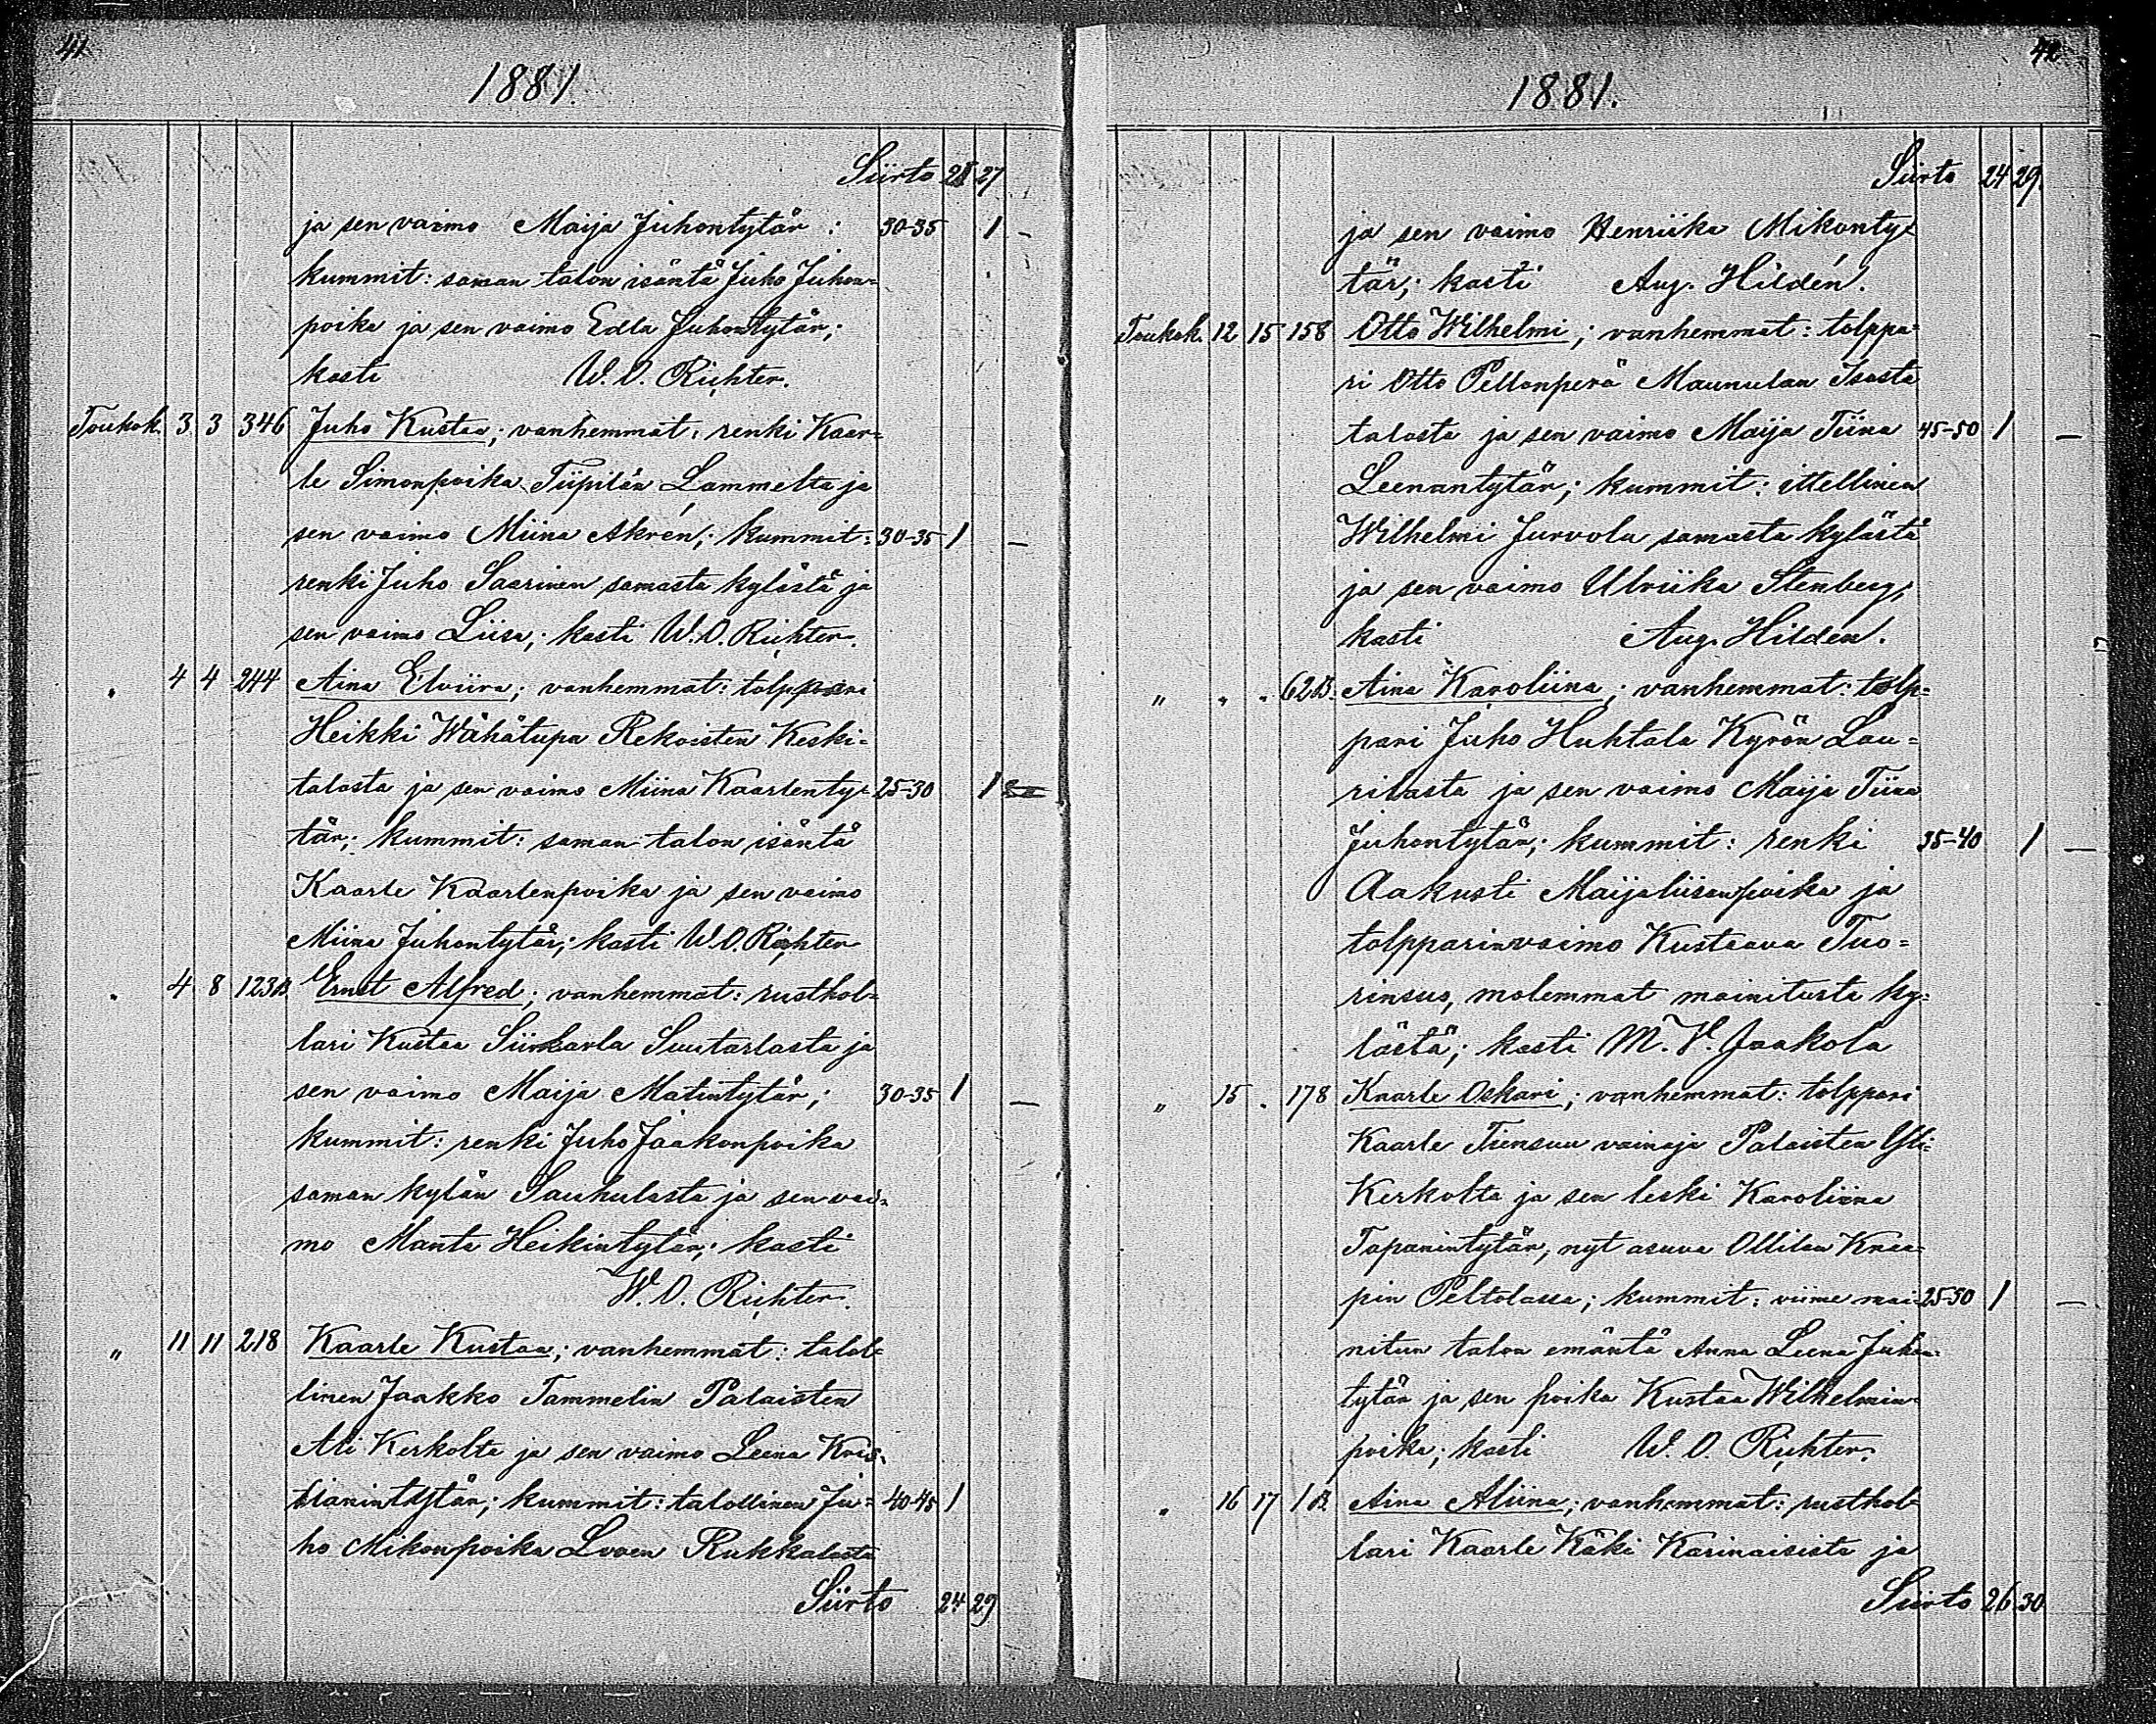 41
1881.
Siirto 21 27
ja sen vaimo Maija Juhontytär: 30-35 1 -
kummit: saman talon isäntä Juho Juhon-
poika ja sen vaimo Edla Juhontytär;
kasti W. O. Richter.
Toukok. 3 3 346 Juho Kustaa; vanhemmat: renki Kaar=
le Simonpoika Tiipilän Lammelta ja
sen vaimo Miina Akrén; kummit: 30-35 1 -
renki Juho Saarinen samasta kylästä ja
sen vaimo Liisa; kasti W. O. Richter.
" 4 4 244 Aina Elviira; vanhemmat: tolppari
Heikki Wähätupa Rekoisten Keski=
talosta ja sen vaimo Miina Kaarlenty= 25-30 1
tär; kummit: saman talon isäntä
Kaarle Kaarlenpoika ja sen vaimo
Miina Juhontytär; kasti W. O. Richter
" 4 8 123B Ernst Alfred; vanhemmat: rusthol=
lari Kustaa Suutarlasta ja
sen vaimo Maija Matintytär; 30-35 1 -
kummit: renki Juho Jaakonpoika
saman kylän Saukulasta ja sen vai=
mo Manta Heikintytär; kasti
W. O. Richter.
" 11 11 218 Kaarle Kustaa; vanhemmat: talol=
linen Jaakko Tammelin Palaisten
Ali Kerkolta ja sen vaimo Leena Kris=
tianintytär; kummit: talollinen Ju= 40-45 1
ho Mikonpoika Rukkalasta
Siirto 24 29
42
1881.
Siirto 24 29
ja sen vaimo Henriika Mikonty=
tär; kasti Aug. Hildén.
Toukok. 12 15 158 Otto Wilhelmi; vanhemmat: tolppa=
ri Otto Pellonperä Maunulan Isosta
talosta ja sen vaimo Maija Tiina 45-50 1 -
Leenantytär; kummit: ittellinen
Wilhelmi Jurvola samasta kylästä
ja sen vaimo Ulriika Stenberg;
kasti Aug. Hilden.
" " " 62B. Aina Karoliina; vanhemmat: tolp=
pari Juho Huhtala Kyrön Lau=
rilasta ja sen vaimo Maija Tiina
Juhontytär; kummit: renki 35-40 1 -
Aakusti Maijaliisanpoika ja
tolpparinvaimo Kustaava Tuo=
rinsuo, molemmat mainitusta ky=
lästä; kasti M. V. Jaakola
" 15 " 178 Kaarle Oskari; vanhemmat: tolppari
Kaarle Tiensuu vainaja Palaisten Yli=
Kerkolta ja sen leski Karoliina
Tapanintytär, nyt asuva Ollilan Knaa=
pin Peltolassa; kummit: viime mai= 25-30 1 -
nitun talon emäntä Anna Leena Juhon-
tytär ja sen poika Kustaa Wilhelmin-
poika; kasti W. O. Richter.
" 16 17 1 B Aina Aliina; vanhemmat: rusthol=
lari Kaarle Käki Karinaisista ja
Siirto 26 30